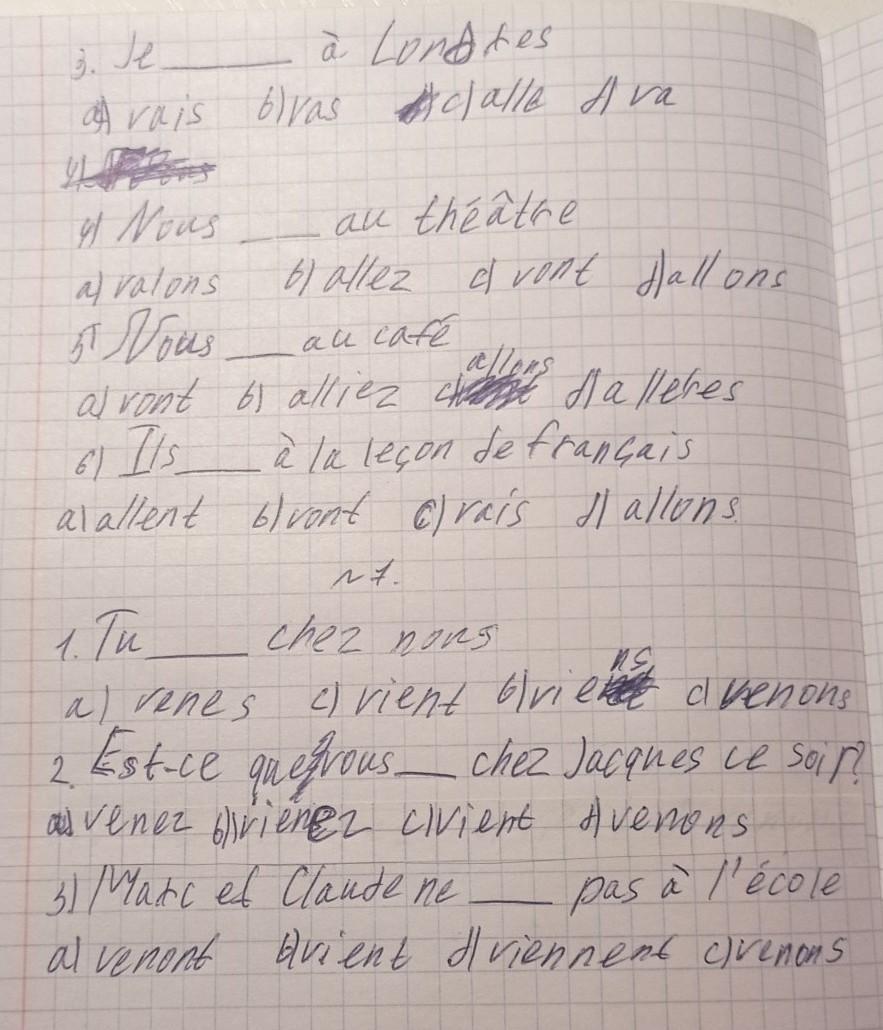 3. Je ____ à Londres
a) vais b) vas c) alle d) va
4) Nous ____ au théâtre
a) valons b) allez c) vont d) allons
5) Nous ____ au café
a) vont b) alliez c) allons d) alleres
6) Ils ____ à la leçon de français
a) allent b) vont c) vais d) allons
N 7.
1. Tu ____ chez nous
a) venes c) vient b) viens d) venons
2. Est-ce que vous ____ chez Jacques ce soir?
a) venez b) vienez c) vient d) venons
3) Marc et Claude ne ____ pas à l'école
a) venont b) vient d) viennent c) venons